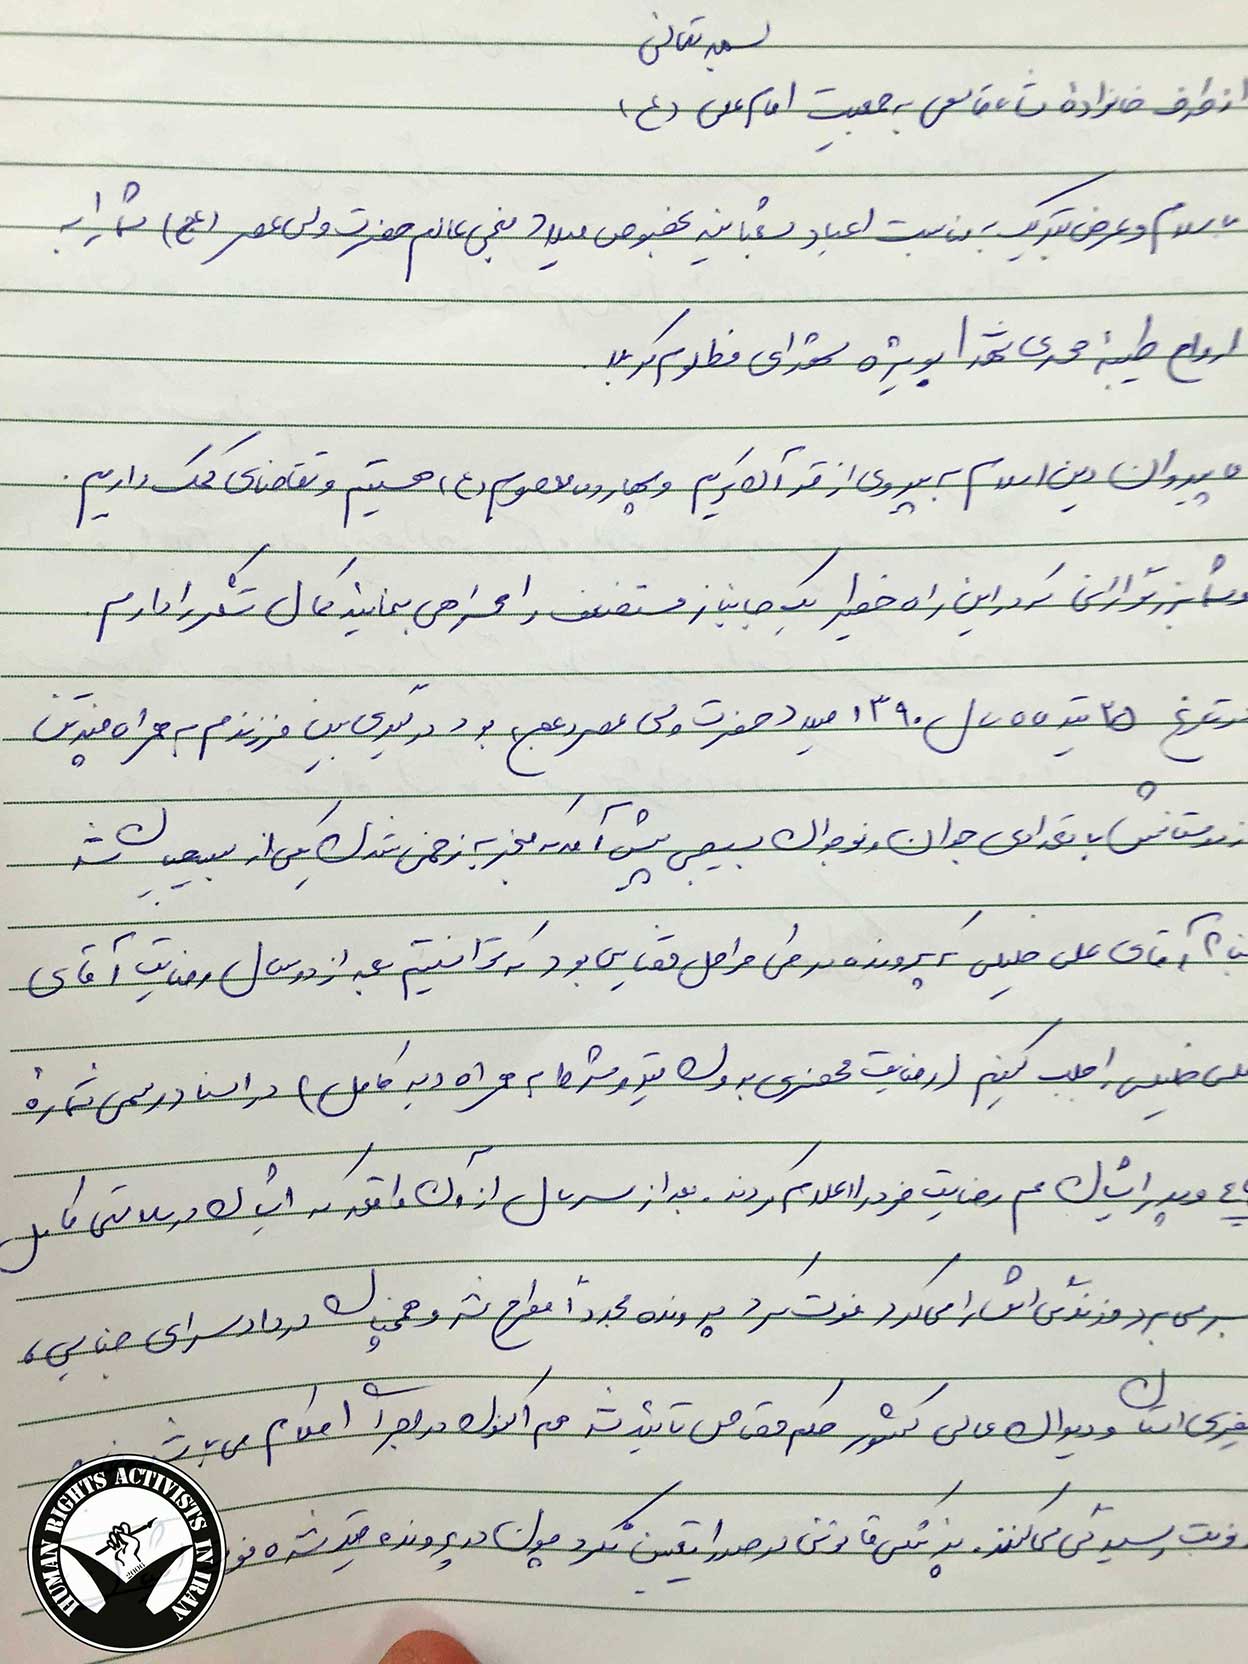 بسمه تعالی
از طرف خانوادهٔ به جمعیت امام علی (ع)
با سلام و عرض تبریک به مناسبت اعیاد شعبانیه بخصوص میلاد منجی عالم حضرت ولی عصر (عج) شما را به
ارواح طیبهٔ شهدا بویژه شهدای مظلوم کربلا.
ما پیروان دین اسلام به پیروی از قرآن کریم و چهارده معصوم (ع) هستیم و تقاضای کمک داریم.
و شما بزرگوارانی که در این راه خطیر یک جانباز مستضعف را همراهی می‌نمایید کمال تشکر را دارم.
در تاریخ ۲۵ تیر ماه سال ۱۳۹۰ میلاد حضرت ولی عصر (عج) بود درگیری بین فرزندم به همراه چند تن
از دوستانش با تعدادی جوان و نوجوان بسیجی پیش آمد که منجر به زخمی شدن یکی از بسیجیان شد
بنام آقای علی خلیلی که پرونده در طی مراحل قضایی بود که توانستیم بعد از دو سال رضایت آقای
علی خلیلی را جلب کنیم (رضایت محضری بدون قید و شرط به همراه دیه کامل) در اسناد رسمی شمارهٔ
و پدر ایشان هم رضایت خود را اعلام کردند. بعد از سه سال از آن واقعه که ایشان در سلامتی کامل
بسر می‌برد و زندگی اش را می‌کرد فوت کرد پرونده مجدداً مطرح شد و همچنان در دادسرای جنایی،
کیفری استان و دیوان عالی کشور حکم قصاص تایید شد هم اکنون در اجرا احکام می‌باشد
نوبت رسیدگی می‌کنند. پزشکی قانونی درصد را تعیین نکرد چون در پرونده قید شده
HUMAN RIGHTS ACTIVISTS IN IRAN
2006